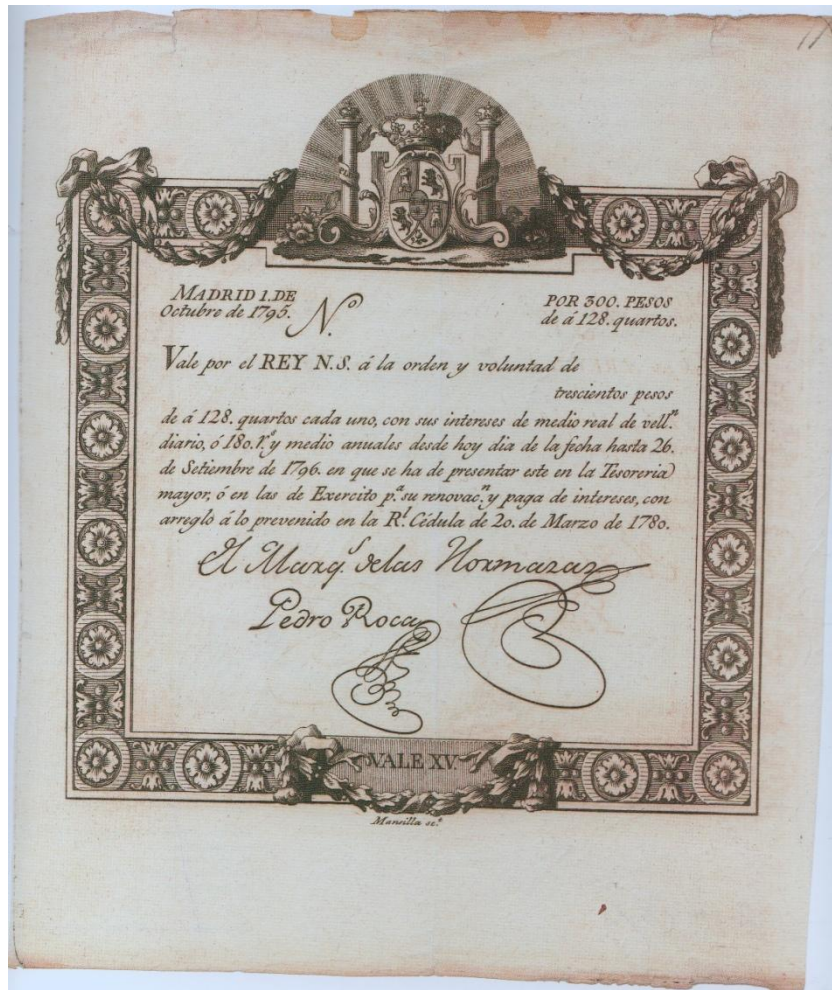 11
MADRID 1. DE
Octubre de 1795.
Nº
POR 300. PESOS
de á 128. quartos.
Vale por el REY N. S. á la orden y voluntad de
trescientos pesos
de á 128. quartos cada uno, con sus intereses de medio real de vell.ⁿ
diario, ó 180. r.ˢ y medio anuales desde hoy dia de la fecha hasta 26.
de Setiembre de 1796. en que se ha de presentar este en la Tesoreria
mayor, ó en las de Exercito p.ᵃ su renovac.ⁿ y paga de intereses, con
arreglo á lo prevenido en la R.ˡ Cédula de 20. de Marzo de 1780.
El Marq.ˢ delas Hormazas
Pedro Roca
VALE XV.
Mansilla sc.ᵗ